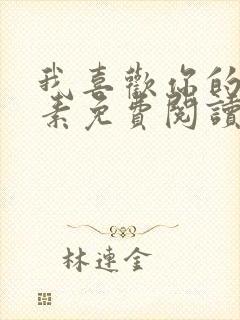 我喜歡你的
素免費閱讀
林連金